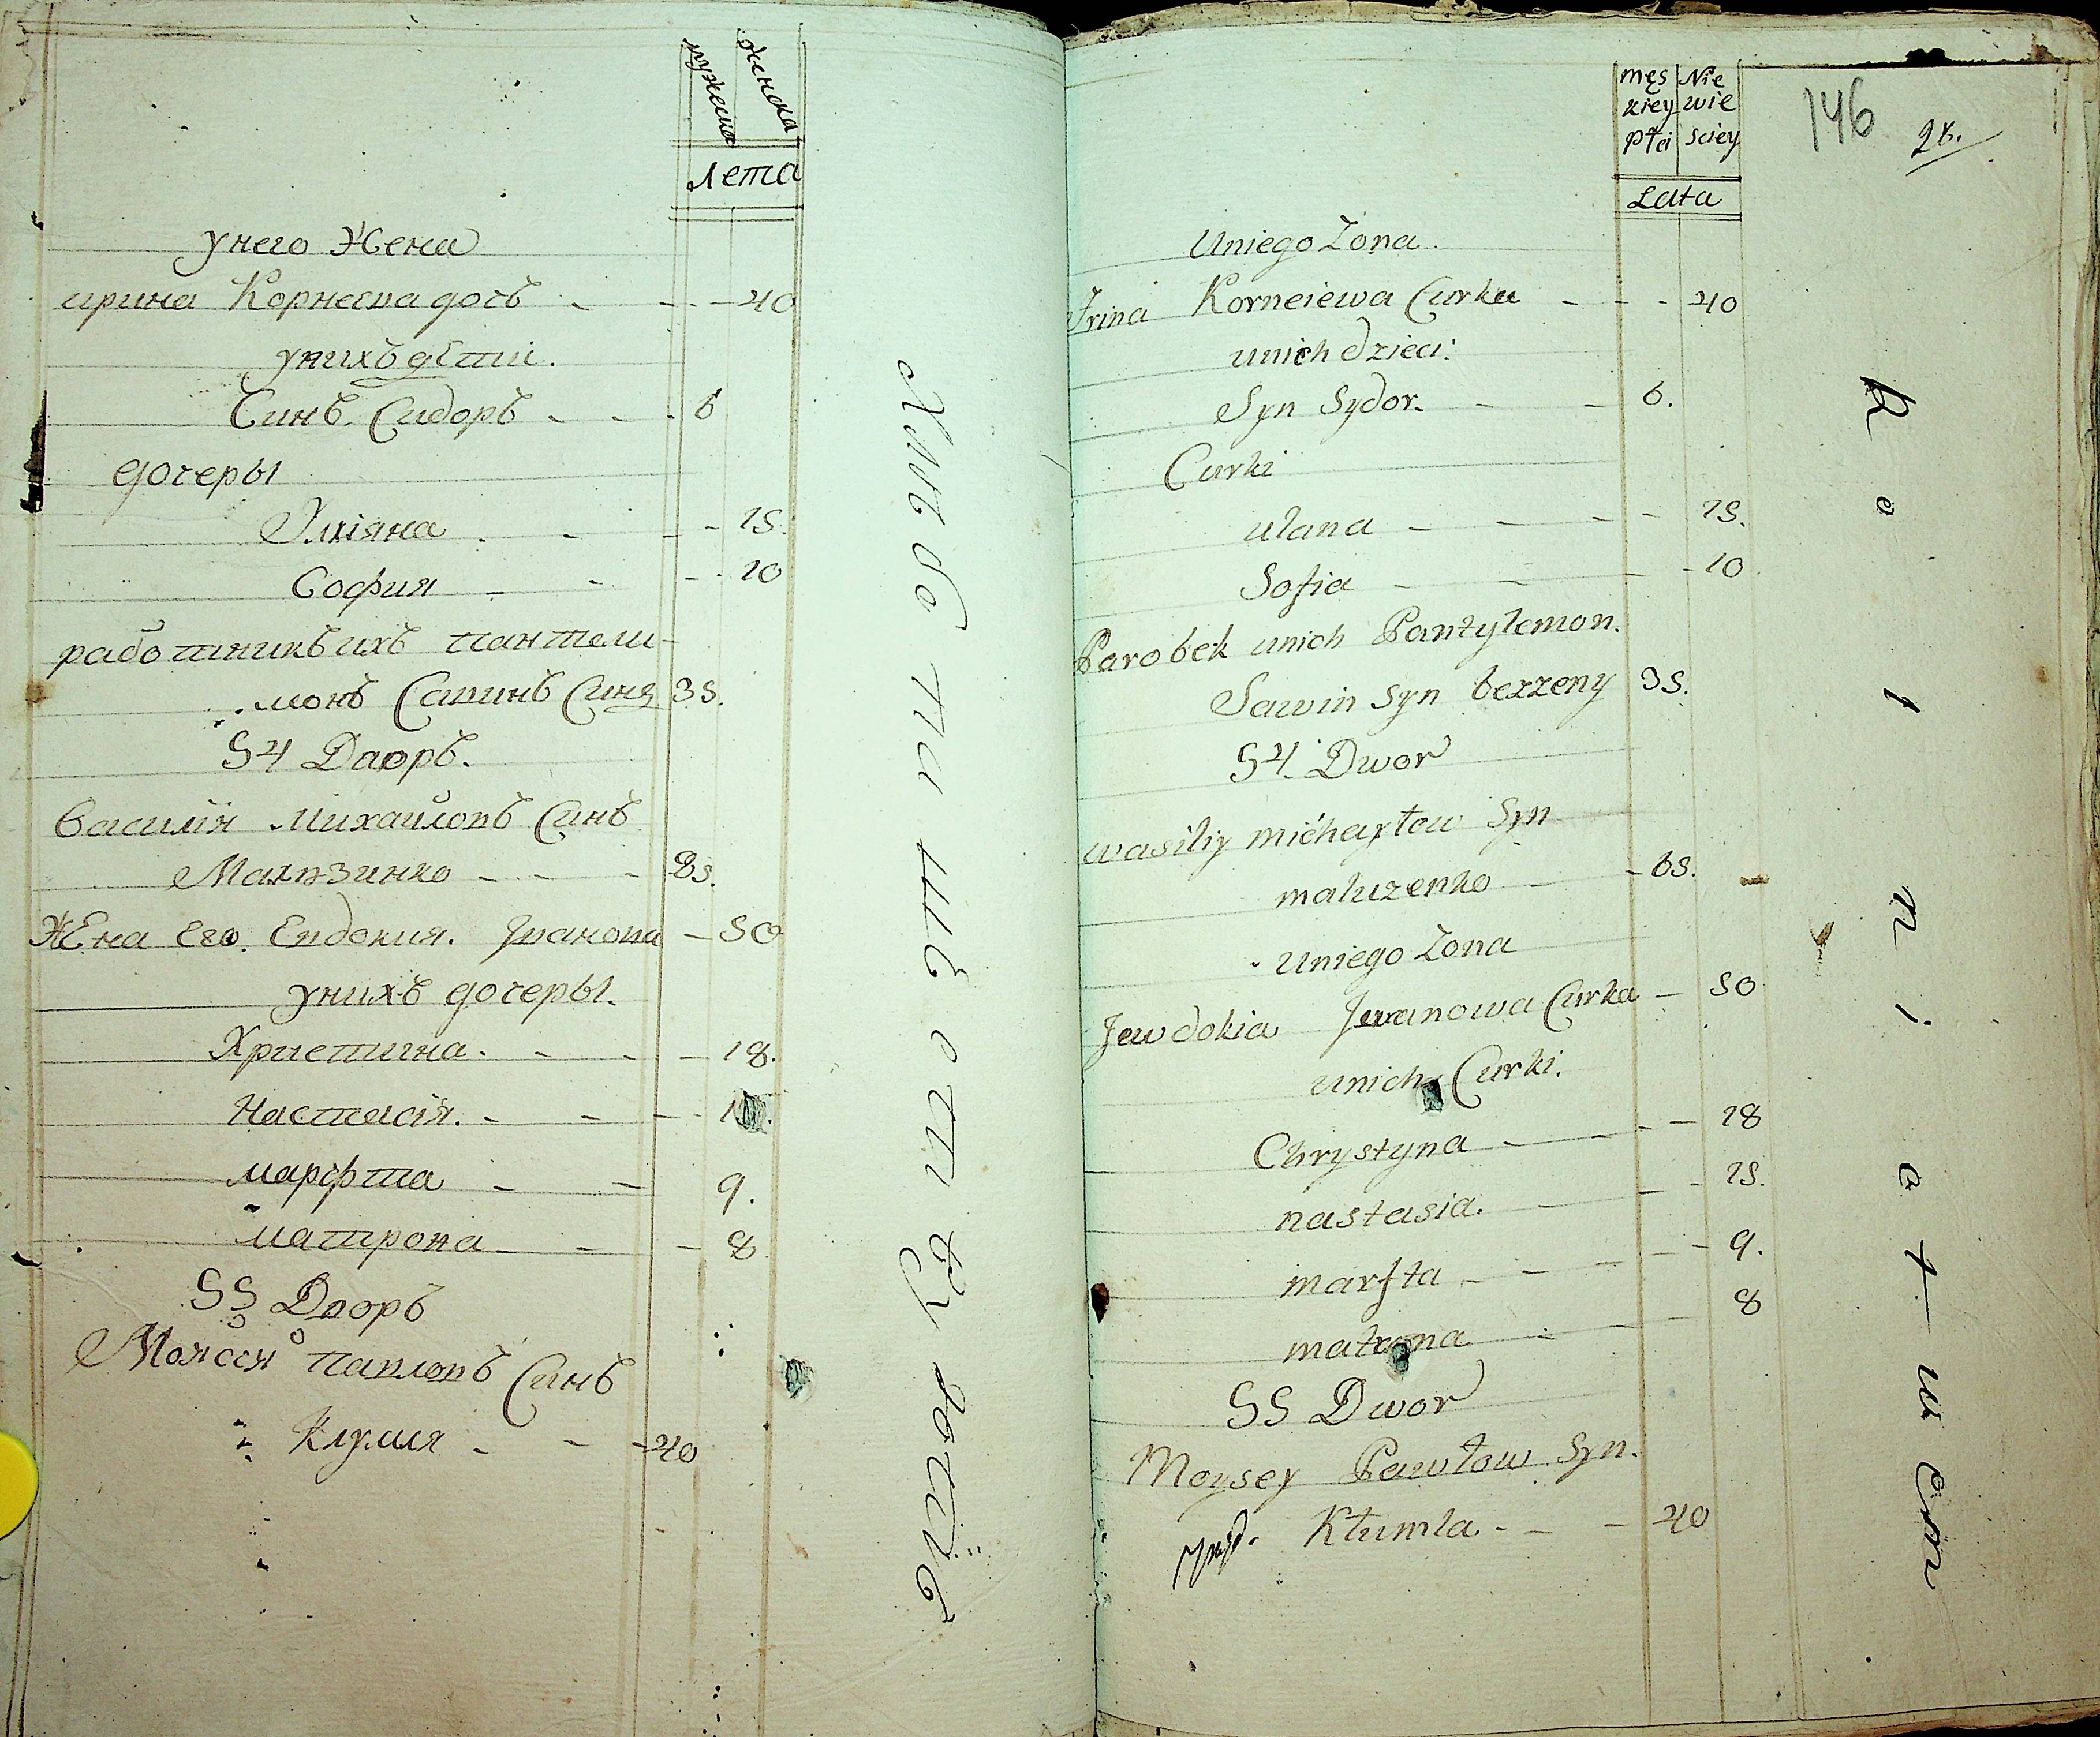 мужеска
женска
лета
унего Жена
ирина Корнеева дочь - - - 40
унихъ дѣти.
Синъ Сидоръ - - - 6
дочеры
Улияна - - - 15.
София - - - 10
работникъ ихъ пантели-
монъ Савинъ Синъ 35.
54 Дворъ.
Василiй Михайловъ Синъ
Малузинко - - - 65.
Жена Его Евдокия. Иванова - 50
унихъ дочеры.
Христина. - - - 18.
Настасiя. - - -
марфта - - 9.
матрона - - - 8
55 Дворъ
Мойсей павловъ Синъ
Клумля - - - 40
męs
kiey
płci
Nie
wie
sciey
Lata
146
Uniego Zona
Irina Korneiewa Curka - - - 40
unich dzieci:
Syn Sydor. - - 6.
Curki
ulana - - - - 15.
Sofia - - - - 10
Parobek unich Pantylemon.
Sawin syn bezzeny 35.
54. Dwor
wasiliy michayłow Syn
maluzenko - - 65.
Uniego Zona
Jewdokia Jwanowa Curka - 50
unich Curki.
Chrystyna - - - 18
nastasia. - - - 15.
marfta - - - - 9.
matrona - - - 8
55 Dwor
Moysey Pawłow Syn.
Kłumla - - - 40